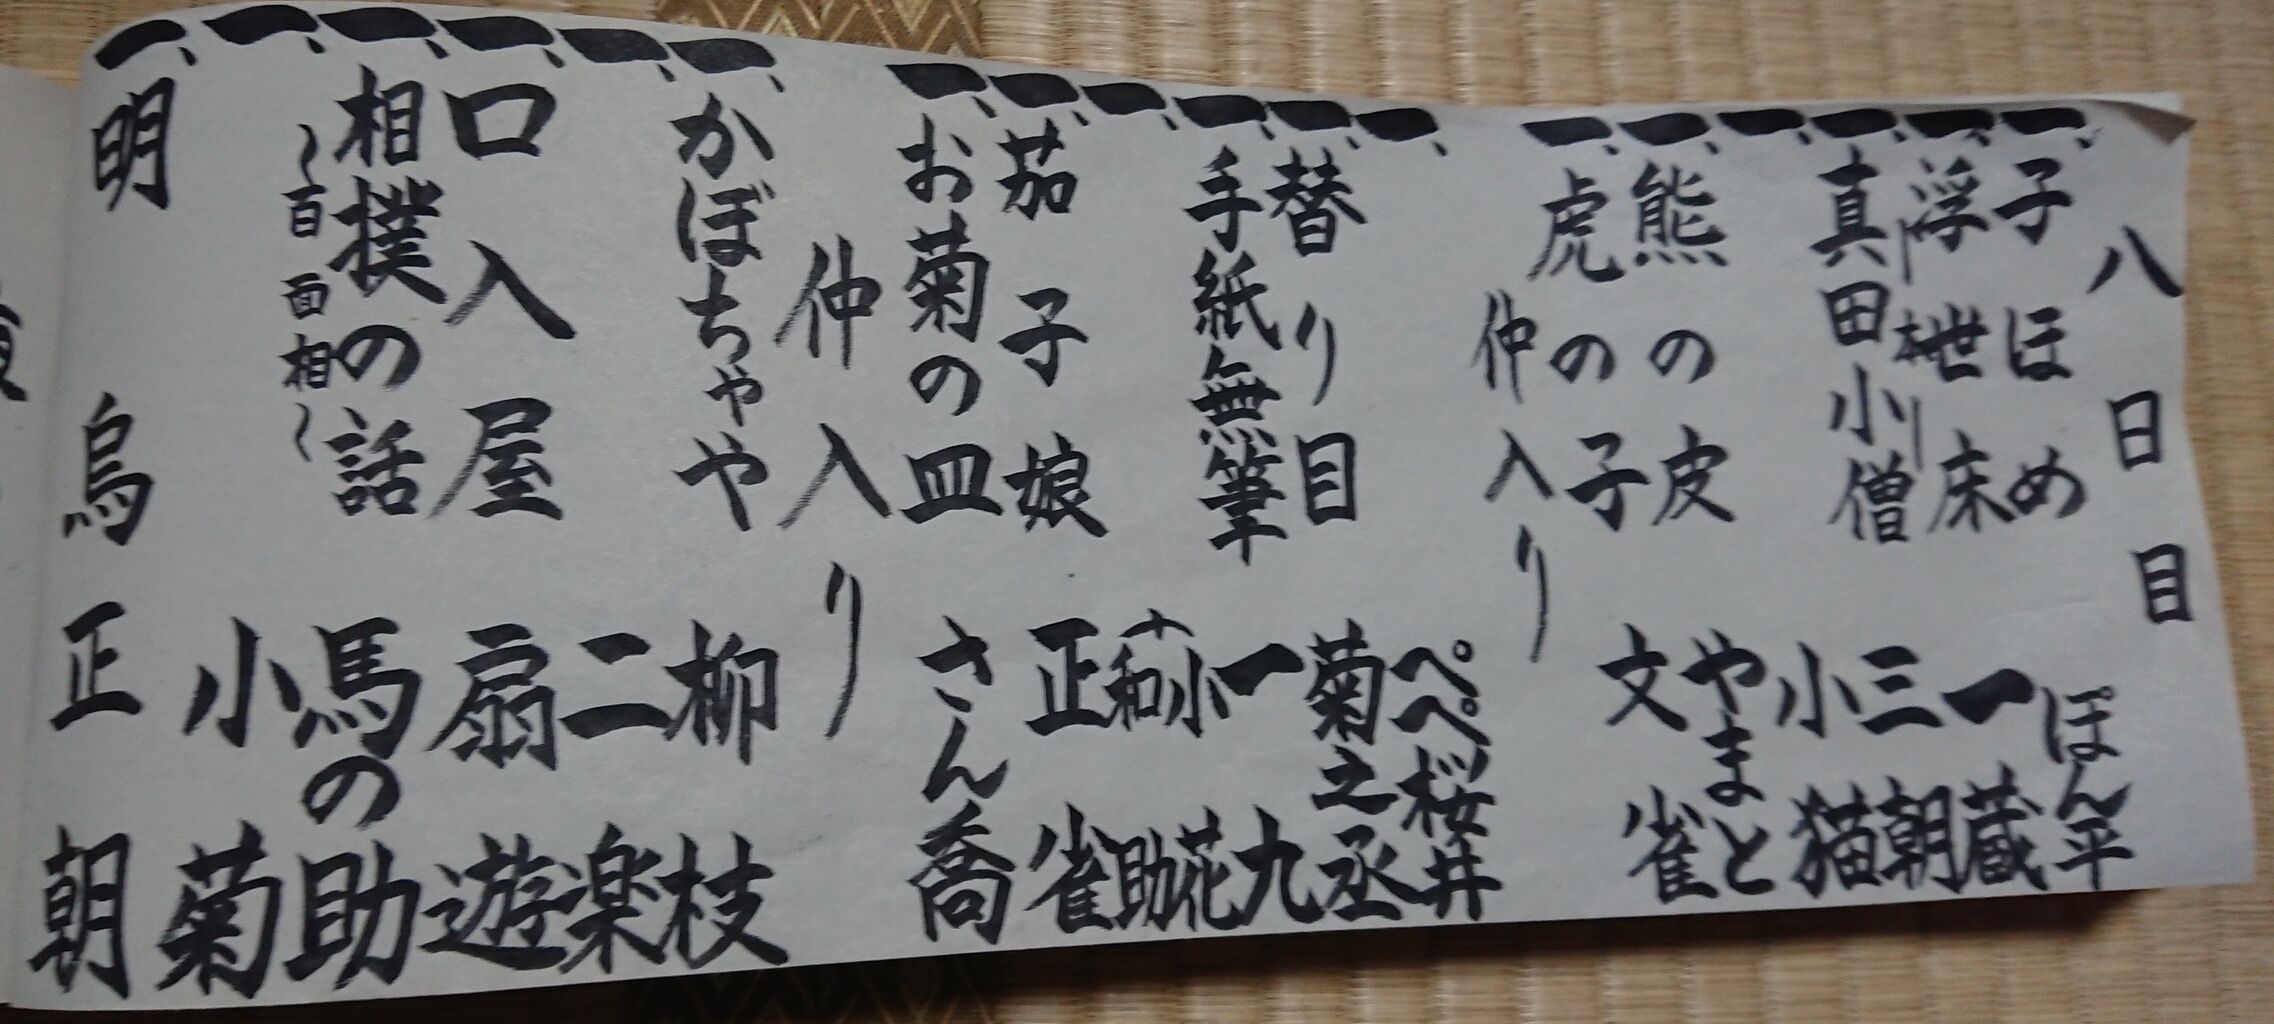 八日目
一、子ほめ ぽん平
一、浮世床 ―本― 一蔵
一、真田小僧 三朝
一、小猫
一、熊の皮 やまと
一、虎の子 文雀
仲入り
一、ペペ桜井
一、替り目 菊之丞
一、手紙無筆 一九
一、小花 和助
一、茄子娘 正雀
一、お菊の皿 さん喬
仲入り
一、かぼちゃや 柳枝
一、二楽
一、口入屋 扇遊
一、相撲の話 〜百面相〜 馬の助
一、小菊
一、明烏 正朝